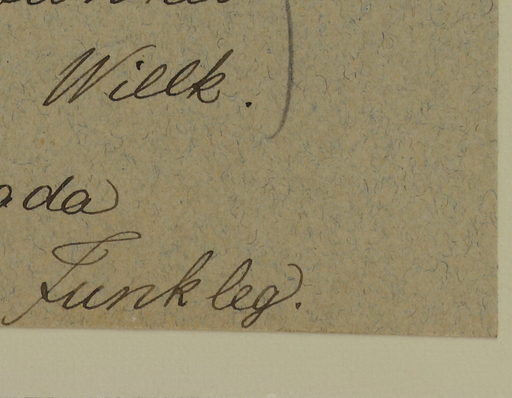 Willk.
ada
Funk leg.